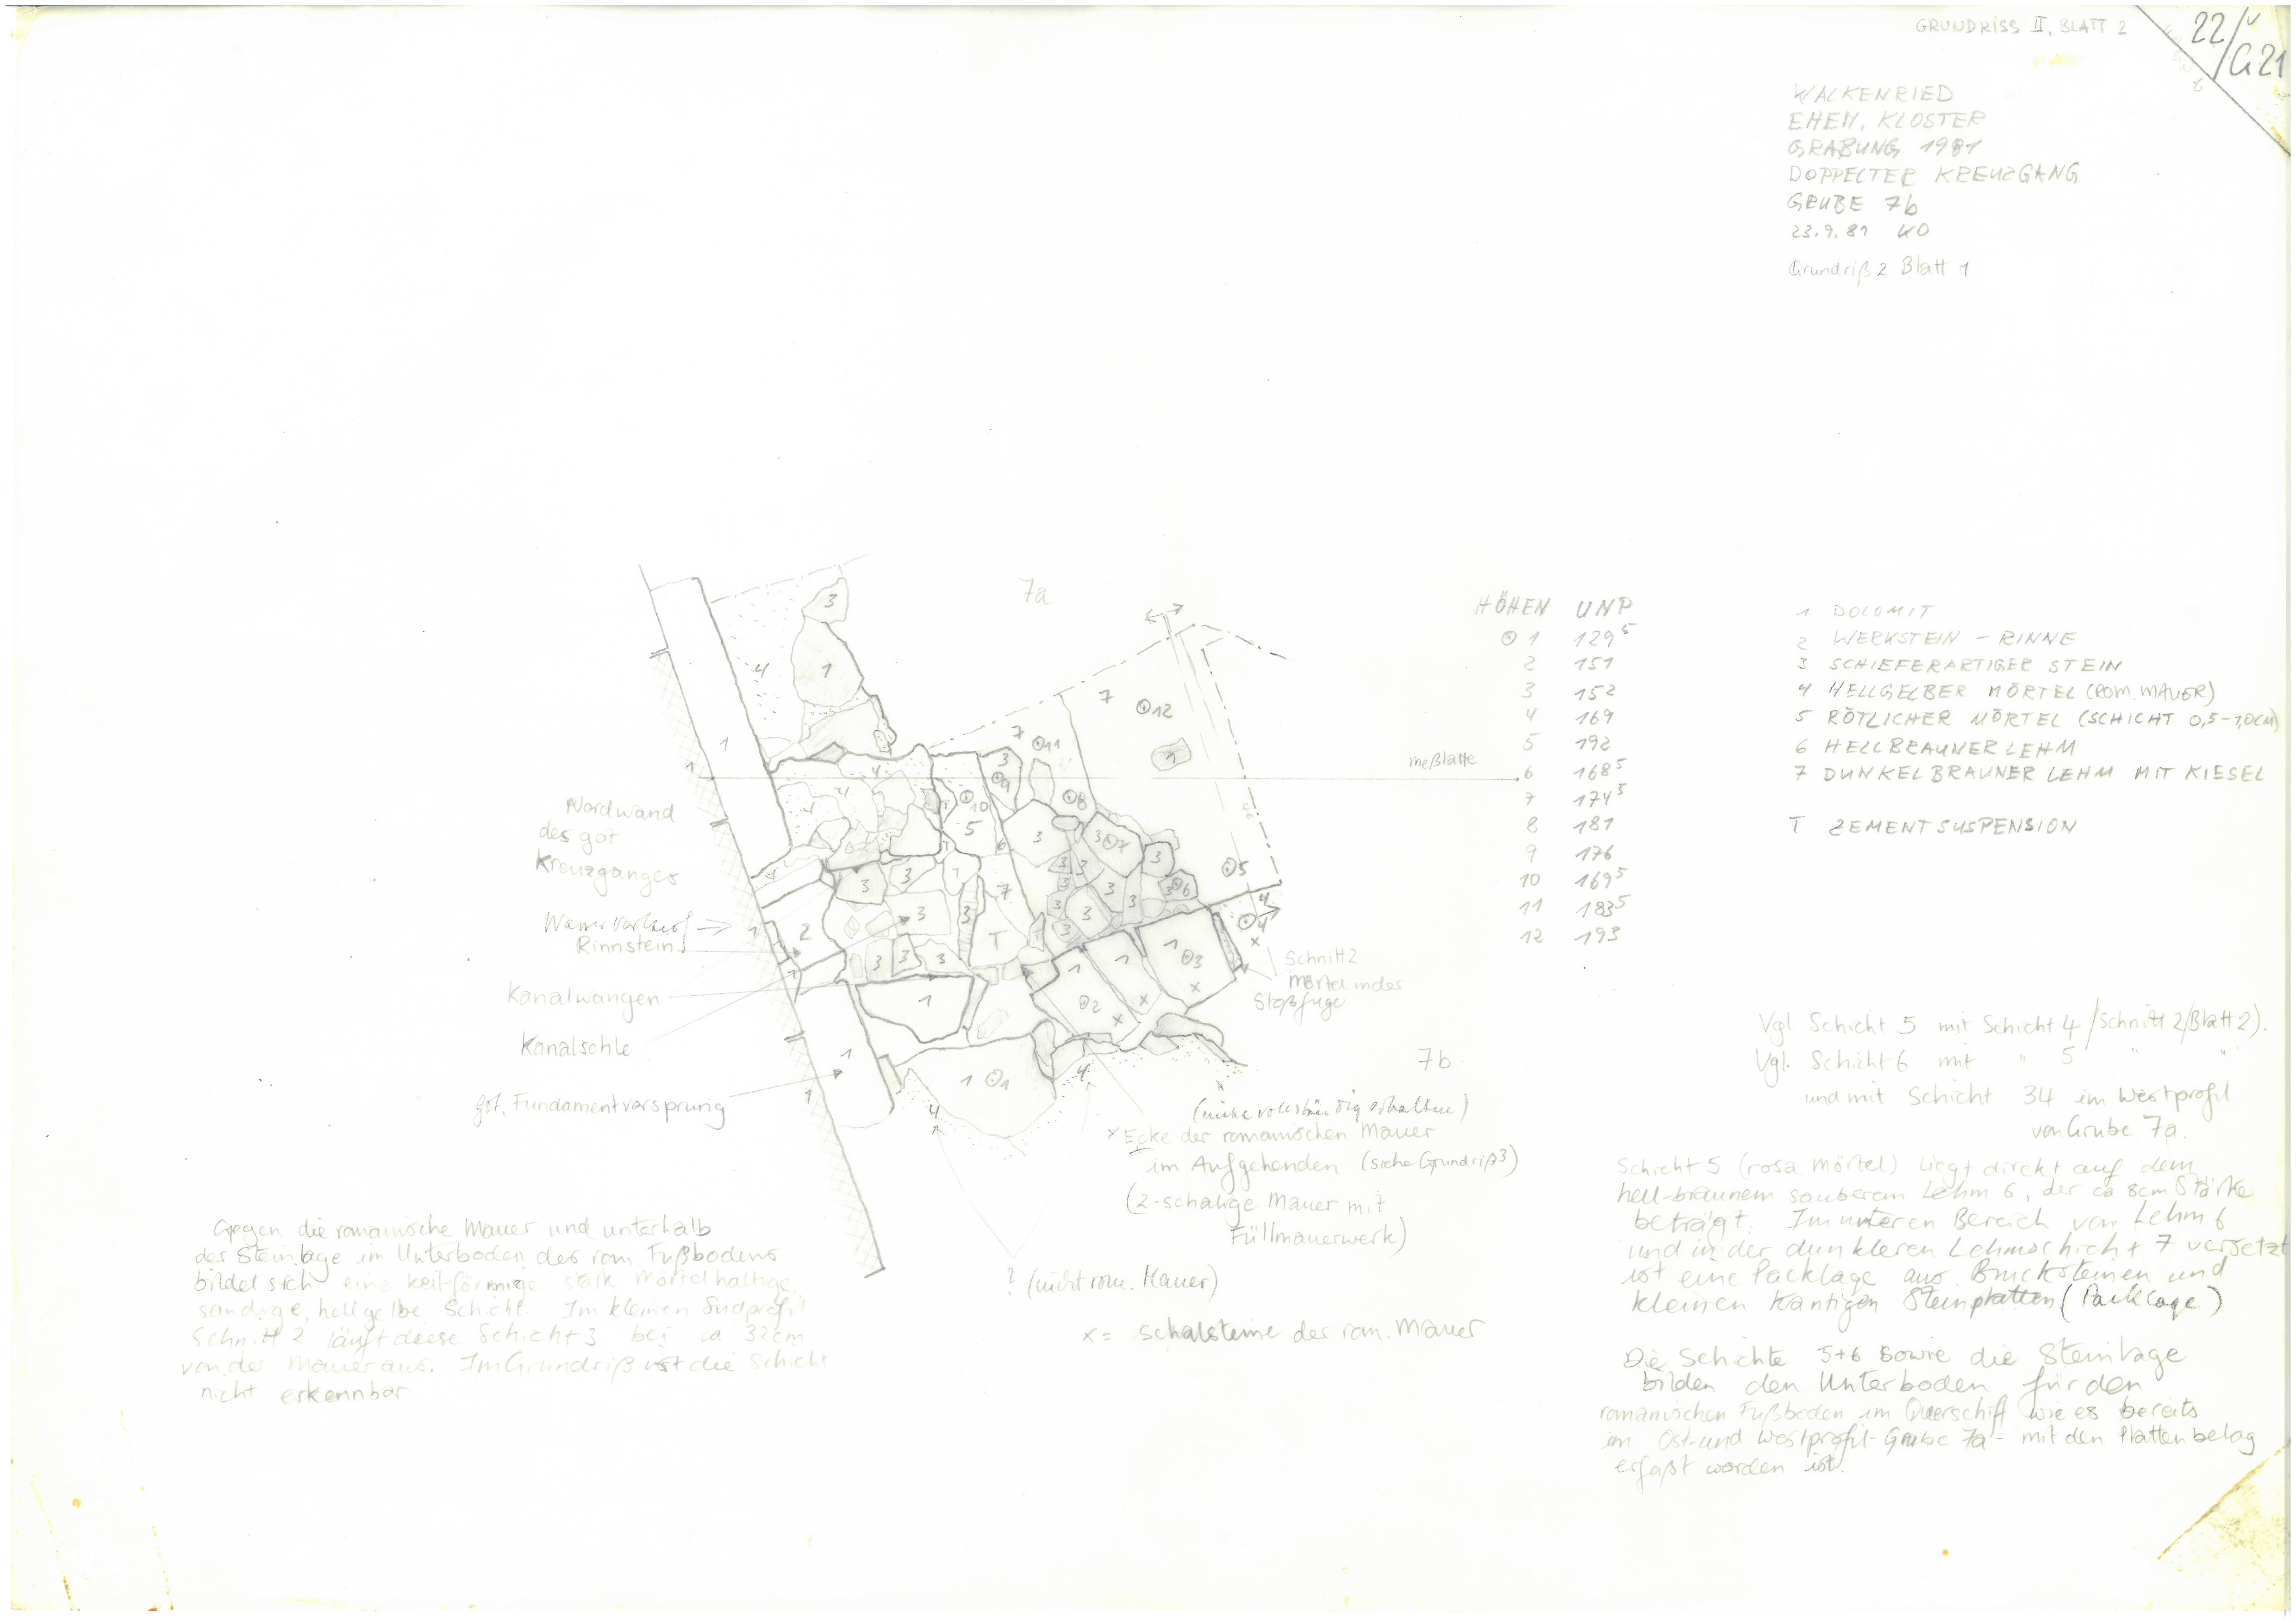 GRUNDRISS II, BLATT 2
22/
G21
WALKENRIED
EHEM. KLOSTER
GRABUNG 1981
DOPPELTER KREUZGANG
GRUBE 7b
23.9.81 KO
Grundriß 2 Blatt 1
7a
HÖHEN UNP
1 129⁵
2 151
3 152
4 169
5 192
6 168⁵
7 174⁵
8 181
9 176
10 169⁵
11 183⁵
12 193
meßlatte
1 DOLOMIT
2 WERKSTEIN – RINNE
3 SCHIEFERARTIGER STEIN
4 HELLGELBER MÖRTEL (ROM. MAUER)
5 RÖTLICHER MÖRTEL (SCHICHT 0,5–1,0CM)
6 HELLBRAUNER LEHM
7 DUNKELBRAUNER LEHM MIT KIESEL
T ZEMENTSUSPENSION
Nordwand
des got.
Kreuzganges
Rinnstein
Kanalwangen
Kanalsohle
got. Fundamentvorsprung
Schnitt 2
Mörtel in der
Stoßfuge
7b
(nicht vollständig erhalten)
x Ecke der romanischen Mauer
im Aufgehenden (siehe Grundriß 3)
(2-schalige Mauer mit
Füllmauerwerk)
? (nicht rom. Mauer)
x = Schalsteine der rom. Mauer
Gegen die romanische Mauer und unterhalb
der Steinlage im Unterboden des rom. Fußbodens
bildet sich eine keilförmige stark mörtelhaltige
sandige, hellgelbe Schicht. Im kleinen Südprofil
Schnitt 2 läuft diese Schicht 3 bei ca 32cm
von der Mauer aus. Im Grundriß ist die Schicht
nicht erkennbar
Vgl. Schicht 5 mit Schicht 4 / Schnitt 2/Blatt 2).
Vgl. Schicht 6 mit " 5 " "
und mit Schicht 34 im Westprofil
von Grube 7a.
Schicht 5 (rosa Mörtel) liegt direkt auf dem
hell-braunem sauberem Lehm 6, der ca 8cm Stärke
beträgt. Im unteren Bereich von Lehm 6
und in der dunkleren Lehmschicht 7 versetzt
ist eine Packlage aus Bruchsteinen und
kleinen kantigen Steinplatten (Packlage)
Die Schichte 5+6 sowie die Steinlage
bilden den Unterboden für den
romanischen Fußboden im Querschiff wie es bereits
im Ost- und Westprofil - Grube 7a - mit den Plattenbelag
erfaßt worden ist.